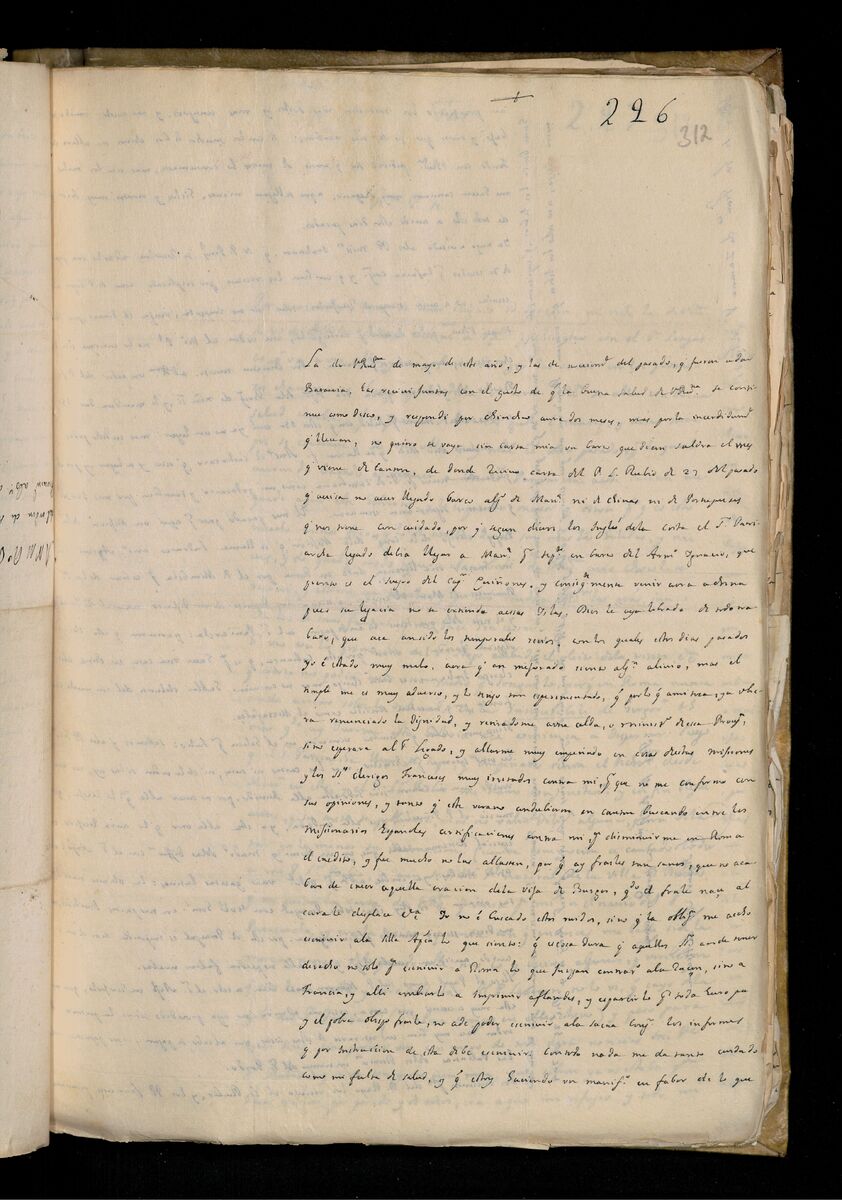 +
226
312
La de V. Rma de mayo de este año, y las de noviembre del pasado, q fueron a dar
Batavia, las recivi juntas con el gusto de q la buena salud de V. Rma se conti
nue como deseo, y respondi por chincheo aura dos meses, mas por la incertidumbre
q llevan, no quiero se vaya sin carta mia un barco que dicen saldra el mes
q viene de Canton, de donde recivo carta del P. L. Rubio de 27 del pasado
y avisa no aver llegado barco algo de Mana ni de chinas ni de Portugueses
q nos tiene con cuidado, por q segun dicen los Ingleses dela costa el Sr Patri
archa legado debia llegar a Mana pr Sepe en barco del Armo Ignacio, que
pienso es el suegro del Capn Quiñones, y consigtemente venir aora a china
pues su legacia no se estiende a essas Islas. Dios le aya librado de todo tra
baxo, que aca an sido los temporales recios, con los quales estos dias pasados
yo é estado muy malo, aora q an mejorado siento algn alivio, mas el
temple me es muy adverso, y lo tengo tan esperimentado, q por lo q amenaza, ya ubie
ra renunciado la Dignidad, y retiradome a una celda, o ministo de essa Prova,
sino esperara al Sr Legado, y allarme muy empeñado en cosas destas missiones
y los SSs clerigos Franceses muy irritados contra mi, pr que no me conformo con
sus opiniones, y tanto q este verano andubieron en canton buscando entre los
missionarios Españoles certificaciones contra mi pr disminuirme en Roma
el credito, y fue mucho no las allassen, por q ay frailes tan sanos, que no aca
ban de creer aquella oracion dela vieja de Burgos, qdo el fraile naça al
cura le desplace eta Yo no é buscado estos ruidos, sino q la oblign me a echo
escrivir ala silla Apca lo que siento: q es cosa dura q aquellos SSs an de tener
derecho no solo pr escrivir a Roma lo que juzgan contrario ala razon, sino a
Francia, y alli embiarlo a imprimir a flandes, y esparcirlo pr toda Europa
y el pobre obispo fraile, no a de poder escrivir ala sacra Congn los informes
q por instruccion de esta debe escrivir. Con esto nada me da tanto cuidado
como mi falta de salud, y q estoy haciendo un manifto en fabor de lo que